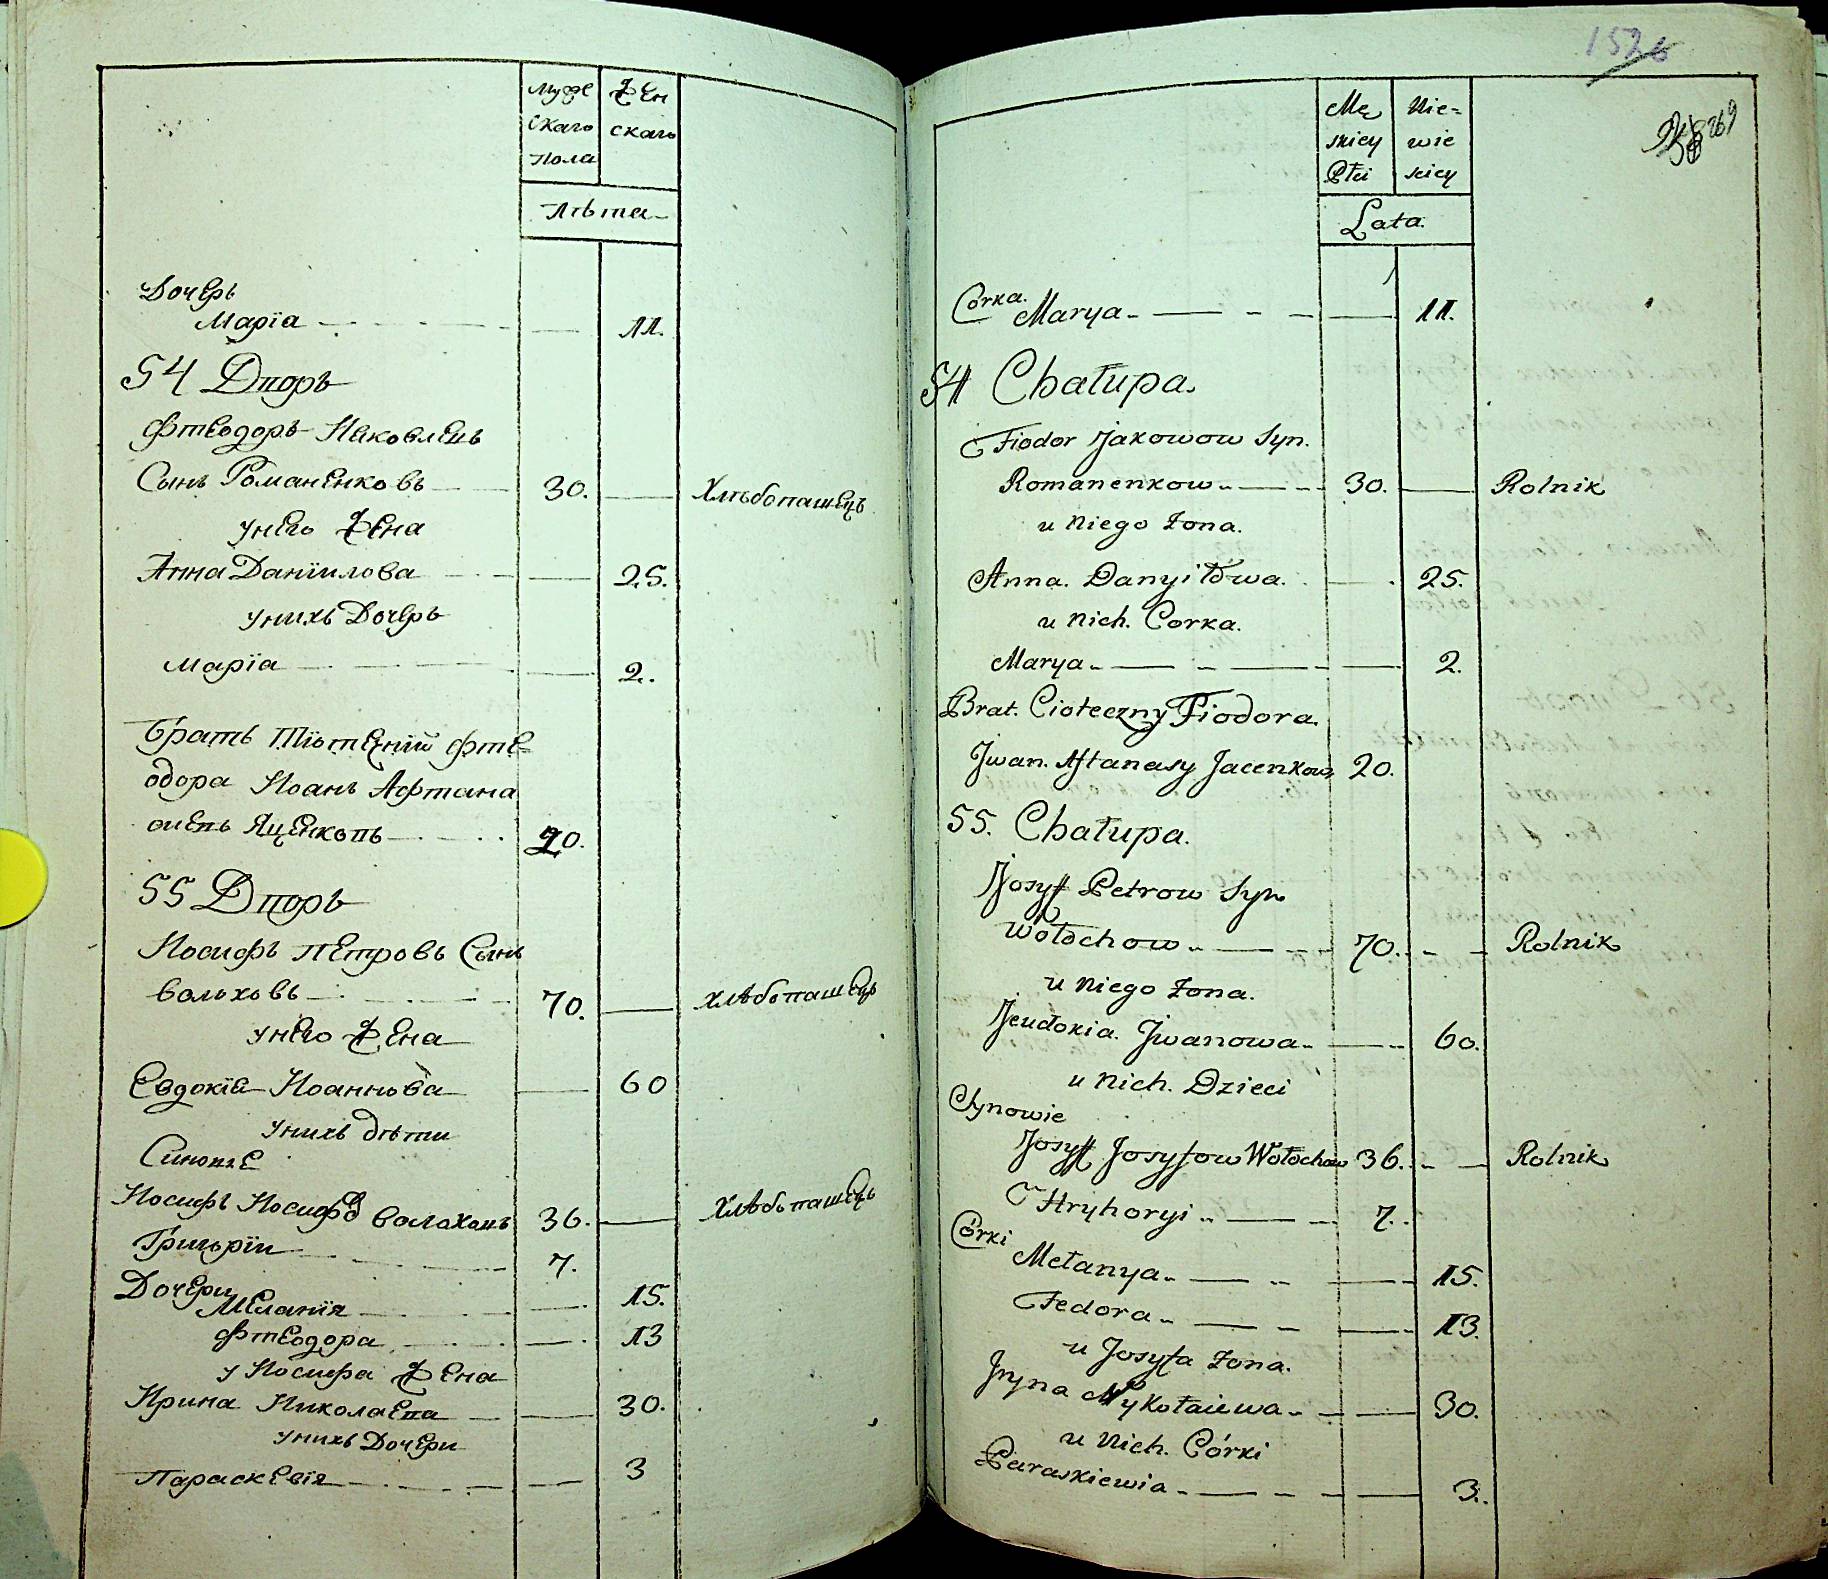 Муже
скаго
пола
Жен
скаго
Лѣта
Дочерь
Марїа 11.
54 Дворъ
Фтеодоръ Иаковлевъ
Сынъ Романенковъ 30. Хлѣбопашець
унего Жена
Анна Данїилова 25.
унихъ Дочерь
Марїа 2.
Братъ Тїотечнїй Фте-
одора Иоанъ Афтана
сиевъ Яценковъ 20.
55 Дворъ
Иосифъ Петровъ Сынъ
Волоховъ 70. Хлѣбопашець
унего Жена
Евдокїа Иоаннова 60
унихъ дѣти
Синовїе
Иосифъ Иосифов Волоховъ 36. Хлѣбопашець
Григорїи 7.
Дочери
Меланїя 15.
Фтеодора 13
у Иосифа Жена
Ирина Николаева 30.
унихъ Дочери
Параскевїя 3
1526
269
Mę
skiey
Płci
Nie=
wie
sciey
Lata.
Córka.
Marya 11.
54 Chałupa.
Fiodor Jakowow Syn.
Romanenkow 30. Rolnik
u niego Zona.
Anna. Danyiłowa. 25.
u nich. Corka.
Marya 2.
Brat. Cioteczny Fiodora.
Jwan. Aftanasy Jacenkow 20.
55. Chałupa.
Josyff Petrow Syn
Wołochow 70. Rolnik
u niego Zona.
Jeudokia. Jwanowa 60.
u nich. Dzieci
Synowie
Josyff Josyfow Wołochow 36. Rolnik
Hryhoryi 7.
Córki
Mełanya 15.
Fedora 13.
u Josyfa Zona.
Jryna Mykołaiewa 30.
u nich. Córki
Paraskiewia 3.